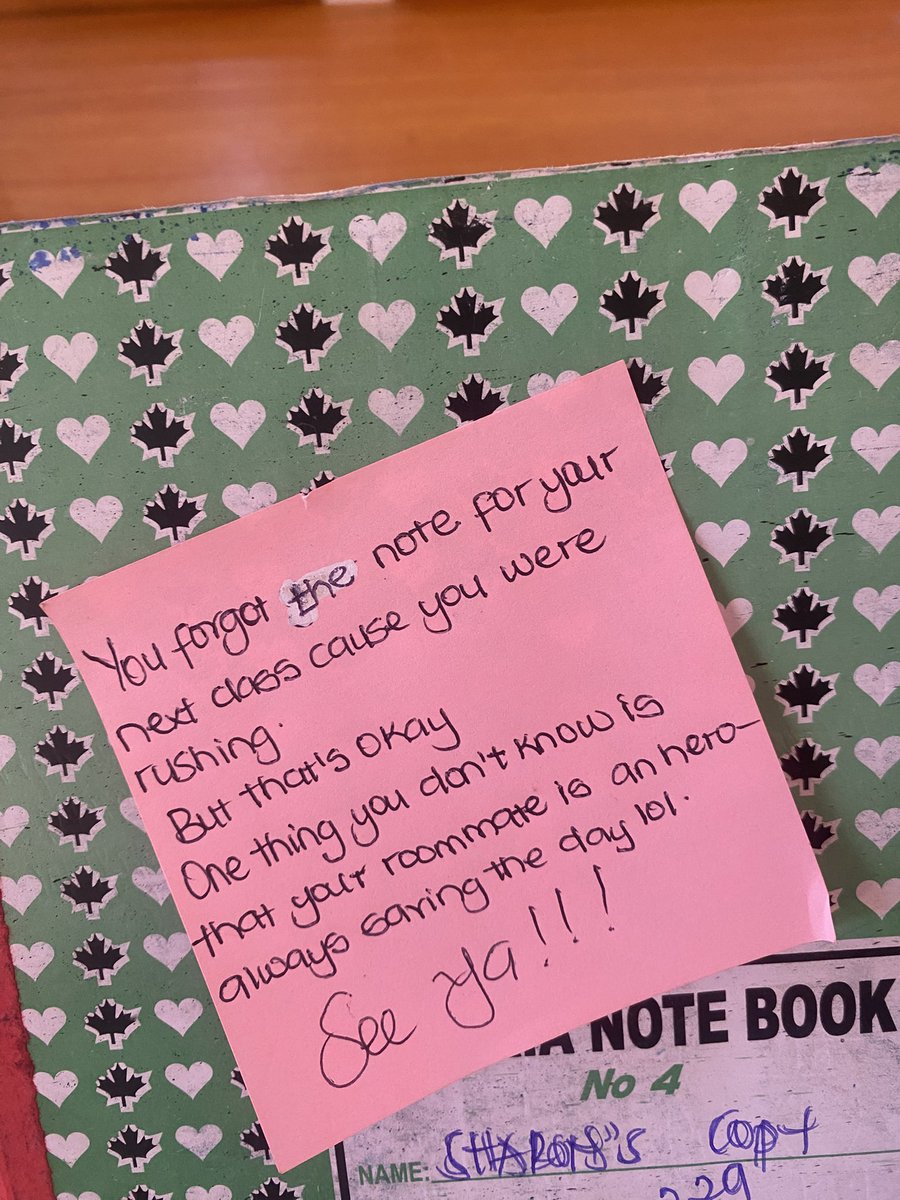 You forgot the note for your
next class cause you were
rushing.
But that's okay
One thing you don't know is
that your roommate is an hero-
always saving the day lol.
See Ya!!!
NOTE BOOK
No 4
NAME: SHARON'S COPY
229